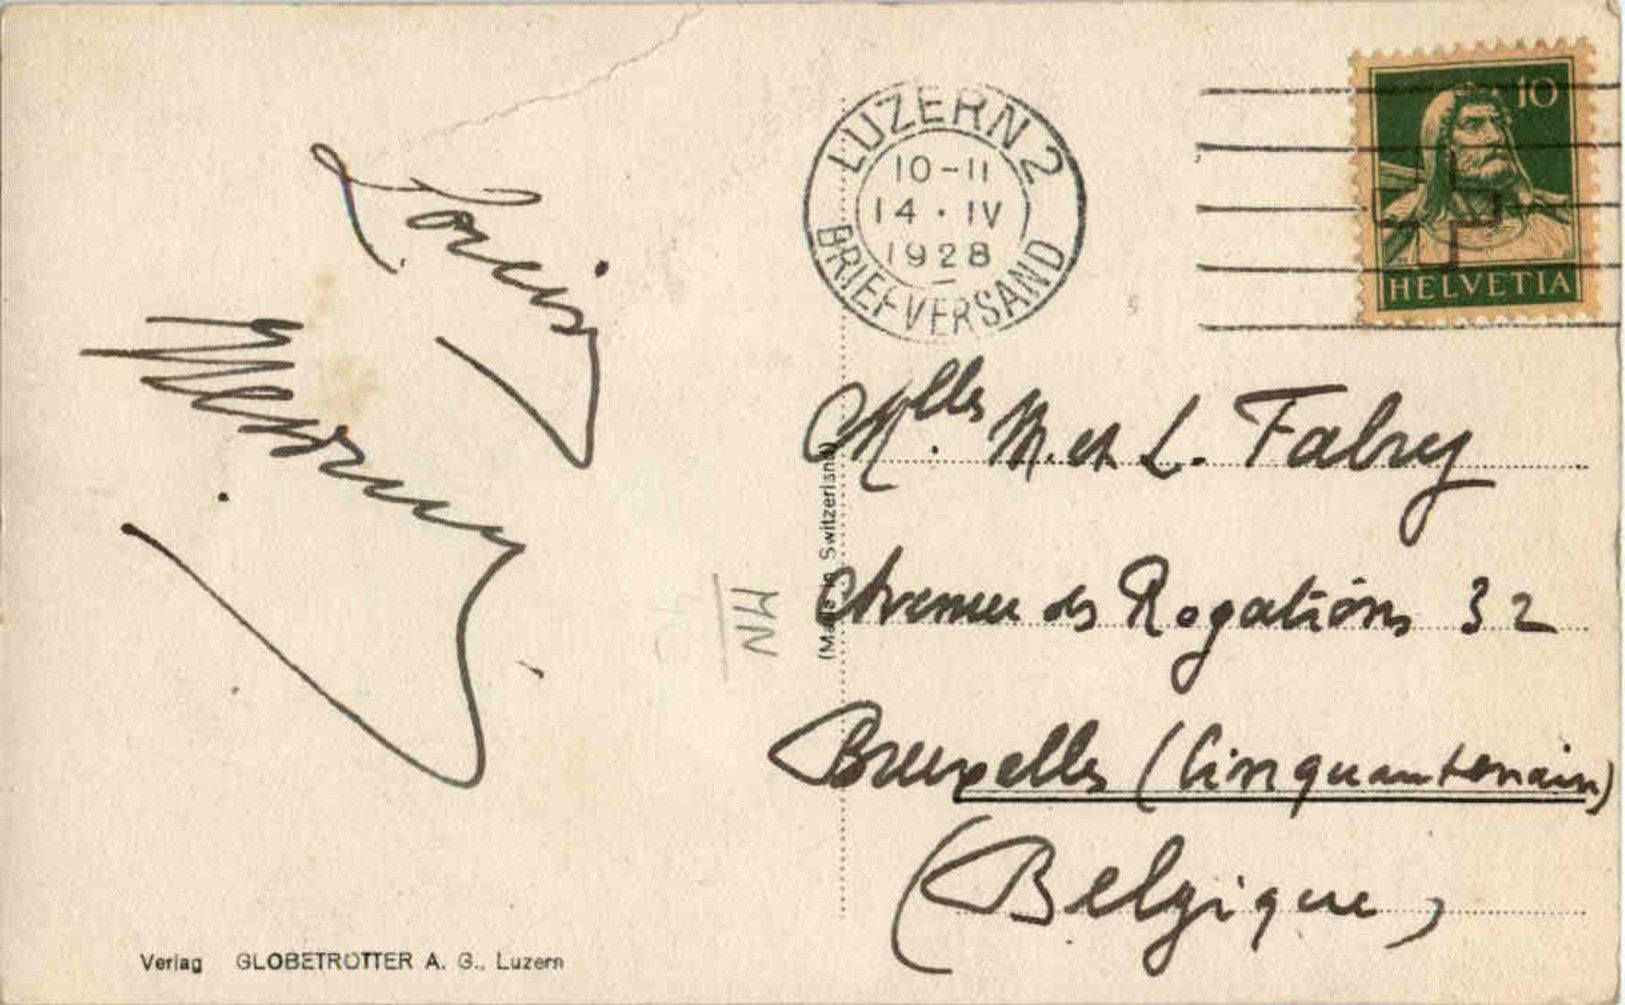 Louis
LUZERN 2
10-11
14 · IV
1928
BRIEFVERSAND
10
HELVETIA
Mlles M. et L. Fabry
Avenue des Rogations 32
Bruxelles (Cinquantenaire)
(Belgique)
(Made in Switzerland)
Verlag GLOBETROTTER A. G., Luzern